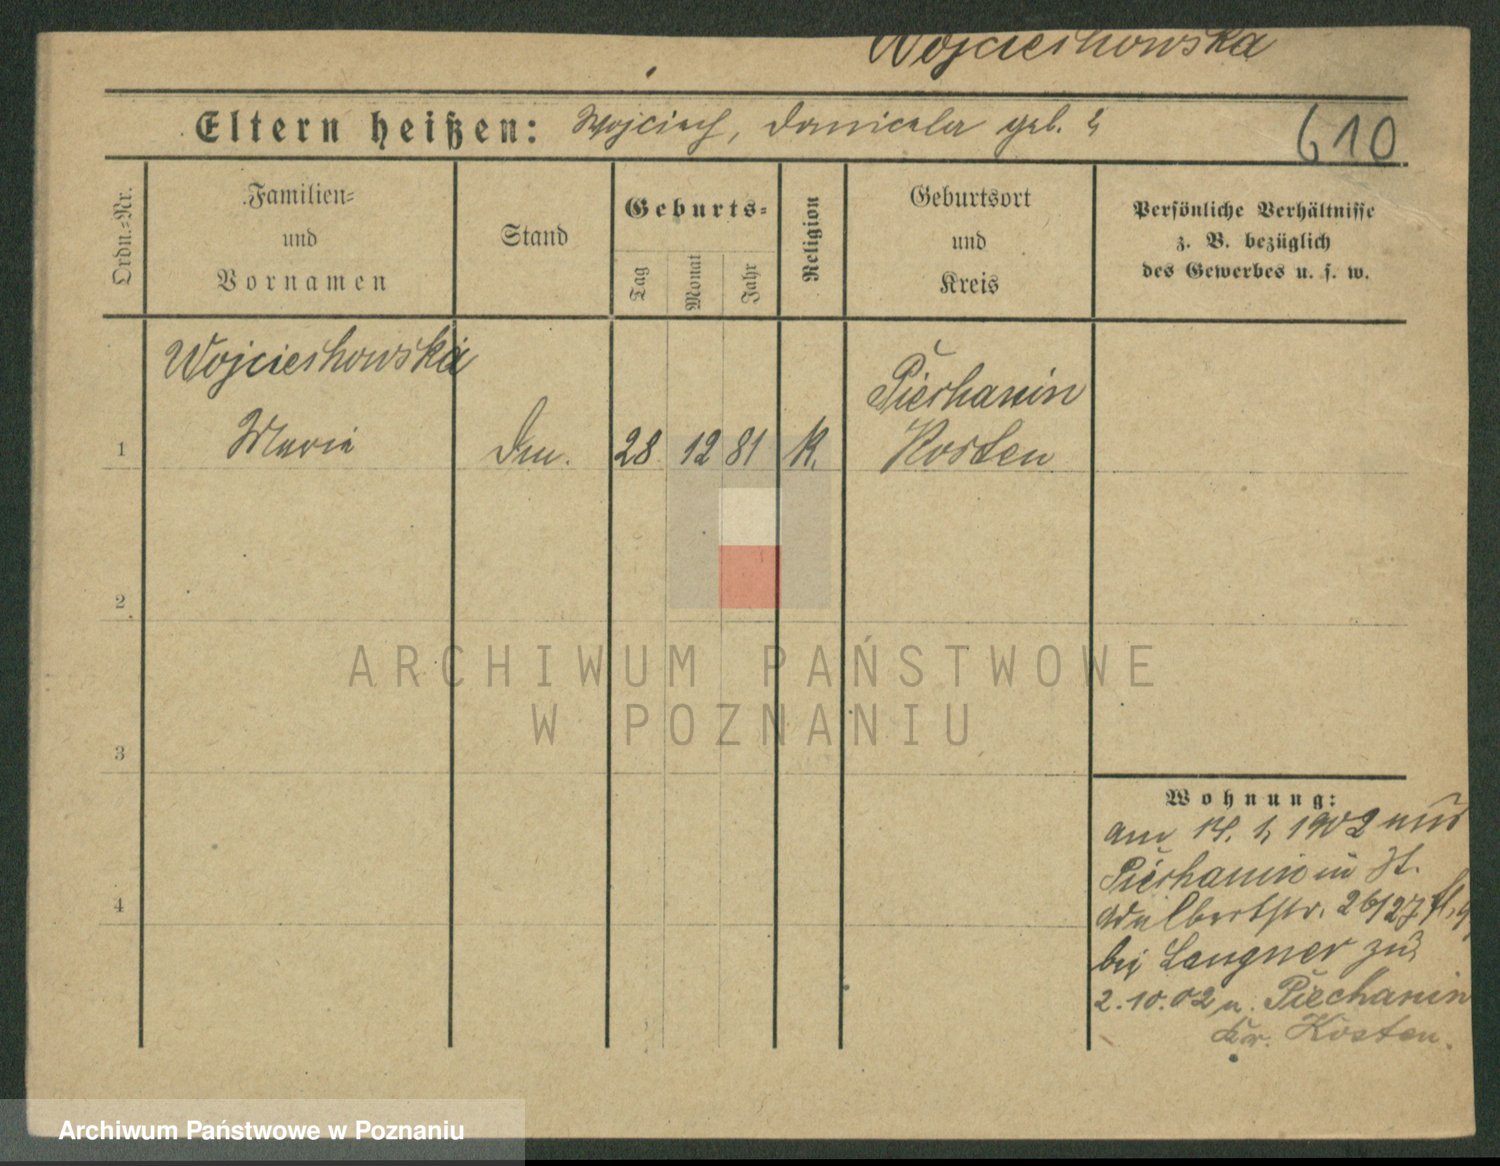 Wojciechowska
Eltern heißen: Wojciech, geb. ?
610
Ordn.-Nr.
Familien-
und
Vornamen
Stand
Geburts-
Tag
Monat
Jahr
Religion
Geburtsort
und
Kreis
Persönliche Verhältnisse
z. B. bezüglich
des Gewerbes u. s. w.
Wojciechowska
Piechanin
1 Marie 28 12 81 K. Kosten
2
ARCHIWUM PAŃSTWOWE
W POZNANIU
3
4
Wohnung:
am 14. 1. 1902 aus
Piechanin in St.
Adalbertstr. 26/27
bei Langner zu
2.10.02 n. Piechanin
Kr. Kosten.
Archiwum Państwowe w Poznaniu